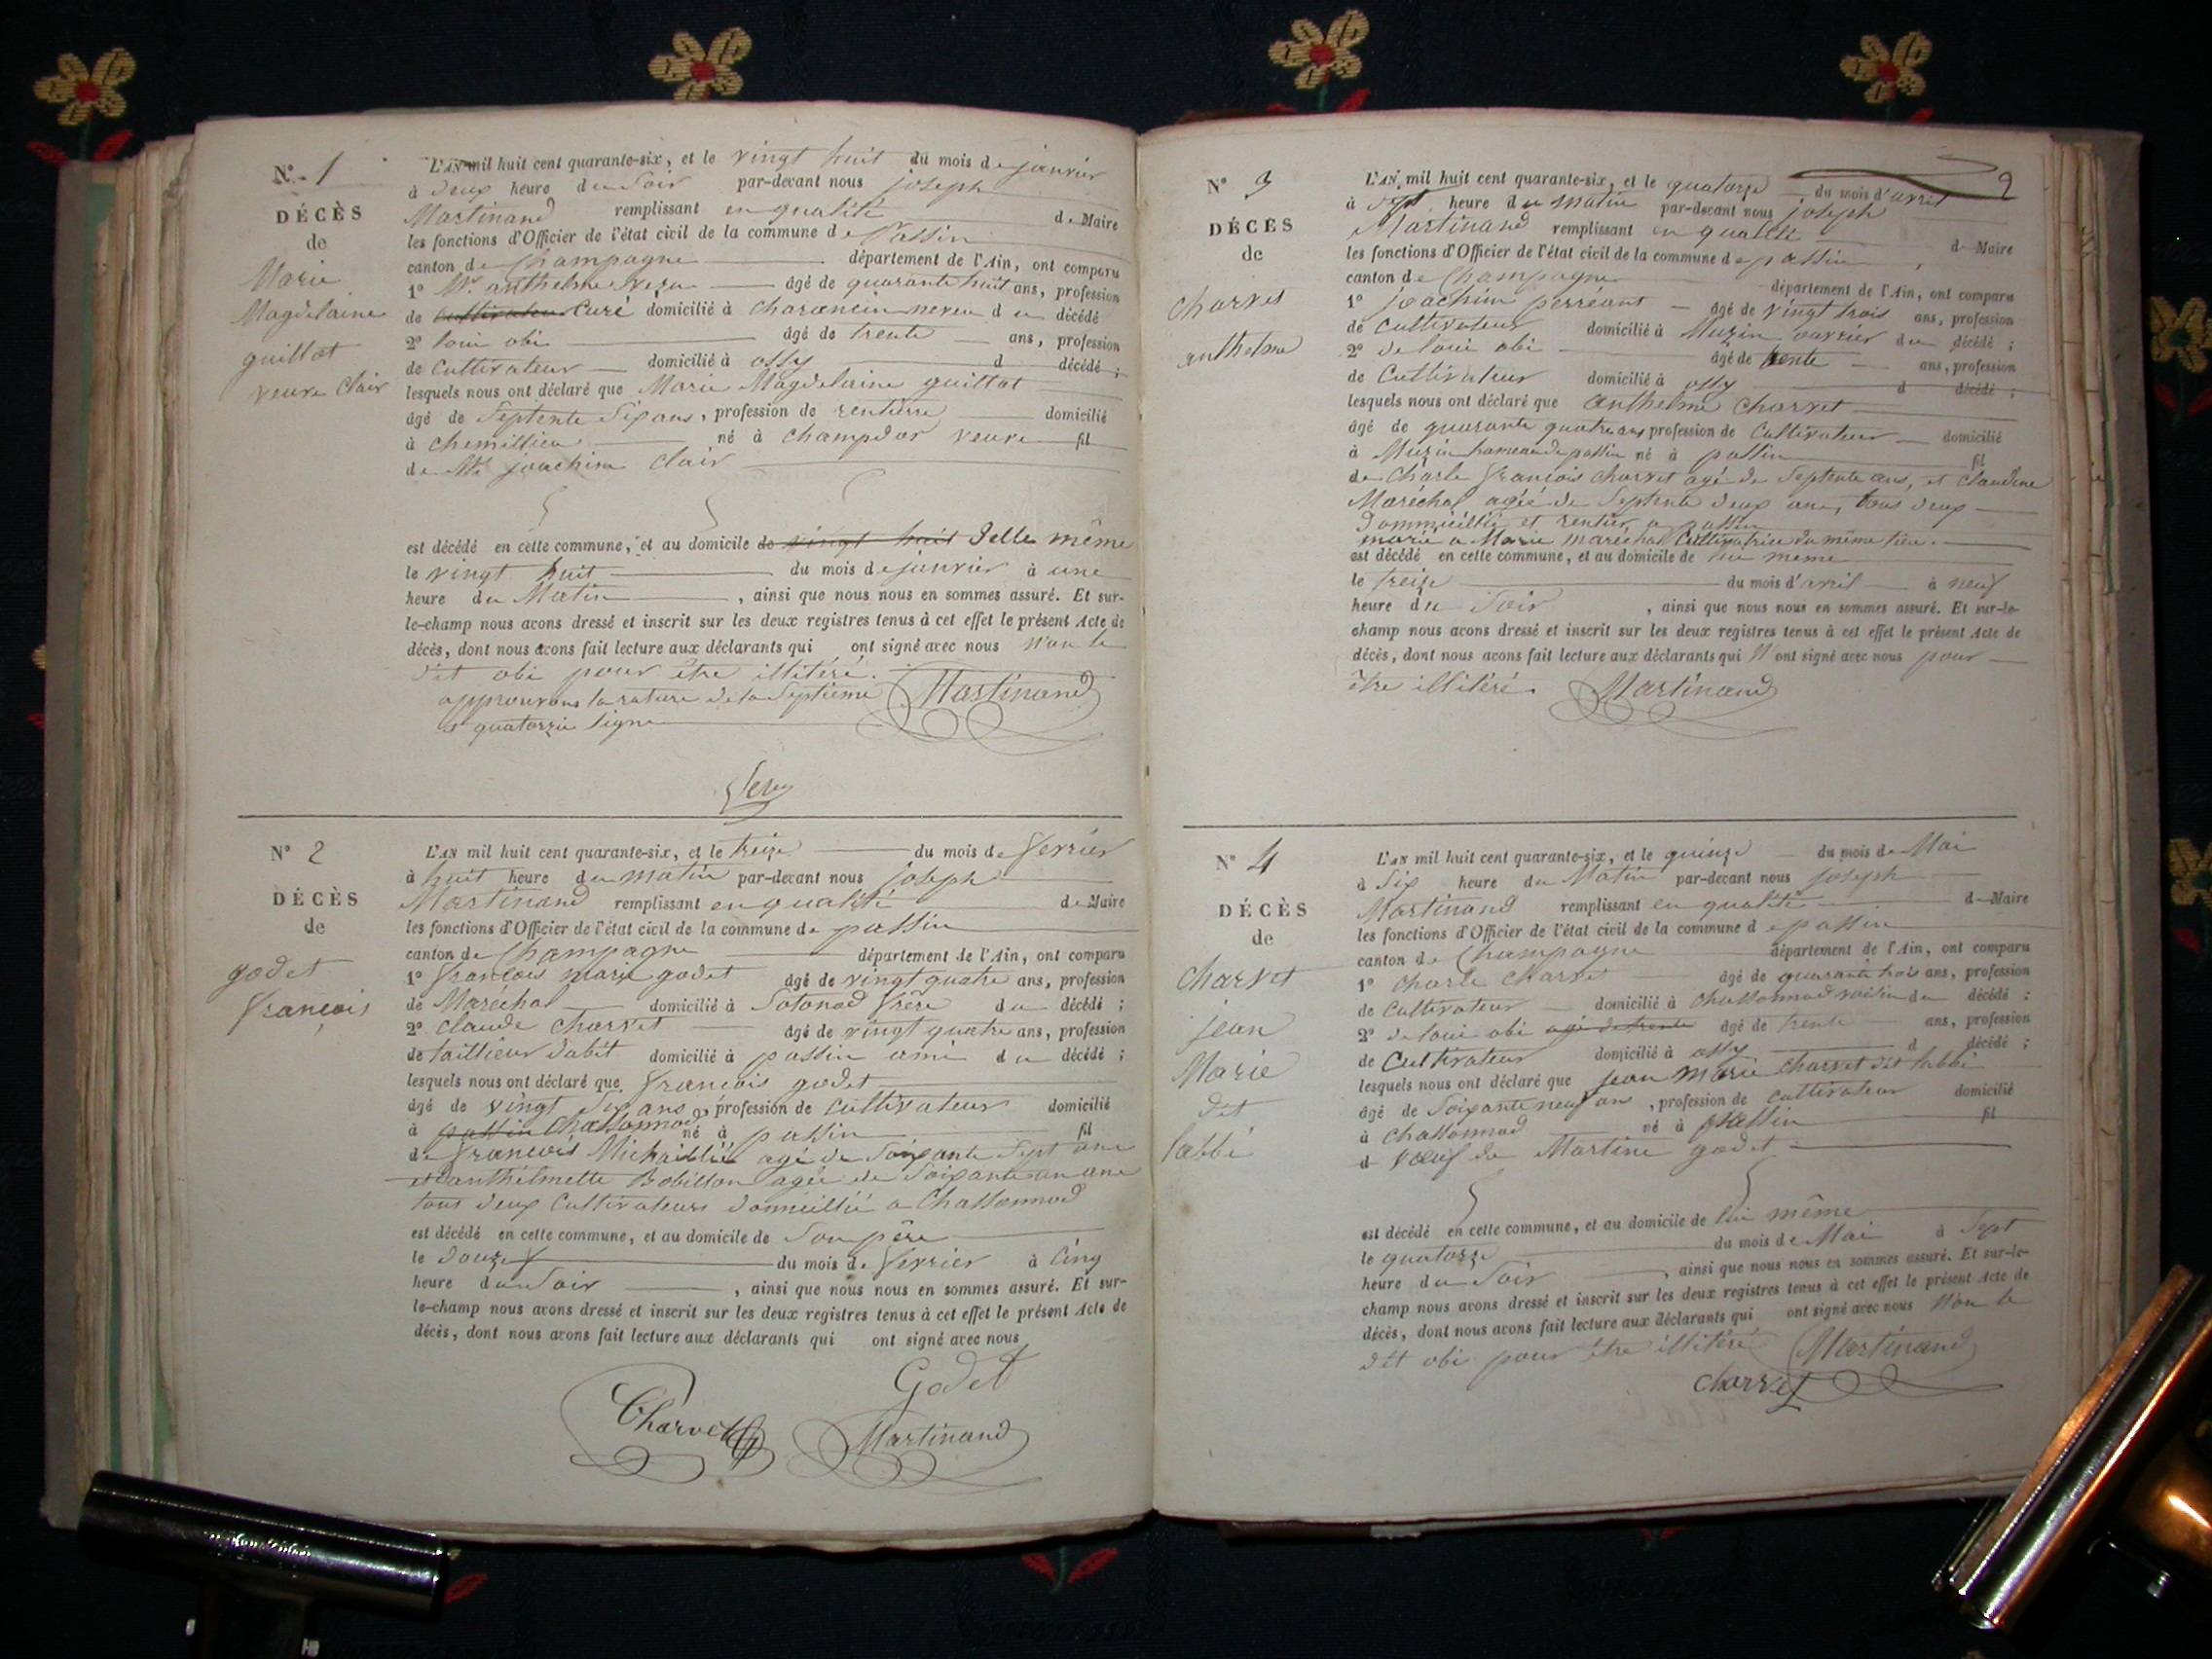 N° 1
DÉCÈS
de
Marie
Magdelaine
guillot
veuve Clair
L'AN mil huit cent quarante-six, et le vingt huit du mois de janvier
à deux heure du Soir par-devant nous joseph
Martinand remplissant en qualité de Maire
les fonctions d'Officier de l'état civil de la commune de Passin
canton de Champagne département de l'Ain, ont comparu
1° Mr. anthelme âgé de quarante huit ans, profession
de cultivateur Curé domicilié à Charancin neveu du décédé
2° loui obi âgé de trente ans, profession
de Cultivateur domicilié à ossy d décédé ;
lesquels nous ont déclaré que Marie Magdelaine guillot
âgé de Septente Six ans, profession de rentierre domicilié
à Chemillieu né à Champdor veuve fil
de Mr joachim Clair
est décédé en cette commune, et au domicile de vingt huit delle même
le vingt huit du mois de janvier à une
heure du Matin , ainsi que nous nous en sommes assuré. Et sur-
le-champ nous avons dressé et inscrit sur les deux registres tenus à cet effet le présent Acte de
décès, dont nous avons fait lecture aux déclarants qui ont signé avec nous Non le
dit obi pour être illitéré.
approuvons la rature de la Septième Martinand
et quatorzie ligne
N° 2
DÉCÈS
de
godet
François
L'AN mil huit cent quarante-six, et le treize du mois de Fevrier
à huit heure du matin par-devant nous joseph
Martinand remplissant en qualité de Maire
les fonctions d'Officier de l'état civil de la commune de passin
canton de Champagne département de l'Ain, ont comparu
1° François marie godet âgé de vingt quatre ans, profession
de Maréchal domicilié à Sotonod frère du décédé ;
2° claude Charvet âgé de vingt quatre ans, profession
de taillieur dabit domicilié à passin ami du décédé ;
lesquels nous ont déclaré que François godet
âgé de vingt Six ans profession de Cultivateur domicilié
à passin Chassonnod né à passin fil
de François Michaillie agé de Soixante Sept ans
et anthelmette Bobillon agée de Soixante un ans
tous deux Cultivateurs domicillié a Chassonnod
est décédé en cette commune, et au domicile de Son père
le douze du mois de Fevrier à Cinq
heure du Soir , ainsi que nous nous en sommes assuré. Et sur-
le-champ nous avons dressé et inscrit sur les deux registres tenus à cet effet le présent Acte de
décès, dont nous avons fait lecture aux déclarants qui ont signé avec nous
Godet
Charvet Martinand
2
N° 3
DÉCÈS
de
Charvet
anthelme
L'AN mil huit cent quarante-six, et le quatorze du mois d'avril
à Sept heure du matin par-devant nous joseph
Martinand remplissant en qualité de Maire
les fonctions d'Officier de l'état civil de la commune de passin
canton de Champagne département de l'Ain, ont comparu
1° joachim âgé de vingt trois ans, profession
de Cultivateur domicilié à Muzin ouvrier du décédé ;
2° de loui obi âgé de trente ans, profession
de Cultivateur domicilié à ossy d décédé ;
lesquels nous ont déclaré que anthelme Charvet
âgé de quarante quatre ans profession de Cultivateur domicilié
à Muzin hameau de passin né à passin fil
de Charle François Charvet agé de Septente ans, et Claudine
Maréchal agée de Septente deux ans, tous deux
dommicillié et rentier a passin
marié a Marie maréchal Cultivatrice du même lieu.
est décédé en cette commune, et au domicile de lui même
le treize du mois d'avril à neuf
heure du Soir , ainsi que nous nous en sommes assuré. Et sur-le-
champ nous avons dressé et inscrit sur les deux registres tenus à cet effet le présent Acte de
décès, dont nous avons fait lecture aux déclarants qui N'ont signé avec nous pour
être illitéré. Martinand
N° 4
DÉCÈS
de
Charvet
jean
Marie
dit
labbé
L'AN mil huit cent quarante-six, et le quinze du mois de Mai
à Six heure du Matin par-devant nous joseph
Martinand remplissant en qualité de Maire
les fonctions d'Officier de l'état civil de la commune de passin
canton de Champagne département de l'Ain, ont comparu
1° Charle Charvet âgé de quarante trois ans, profession
de Cultivateur domicilié à Chassonnod voisin du décédé ;
2° de loui obi agé de trente âgé de trente ans, profession
de Cultivateur domicilié à ossy d décédé ;
lesquels nous ont déclaré que jean Marie Charvet dit labbé
âgé de Soixante neuf ans , profession de Cultivateur domicilié
à Chassonnod né à passin fil
d Vœuf de Martine godet
est décédé en cette commune, et au domicile de lui même
le quatorze du mois de Mai à Sept
heure du Soir , ainsi que nous nous en sommes assuré. Et sur-le-
champ nous avons dressé et inscrit sur les deux registres tenus à cet effet le présent Acte de
décès, dont nous avons fait lecture aux déclarants qui ont signé avec nous Non le
dit obi pour être illitéré Martinand
Charvet